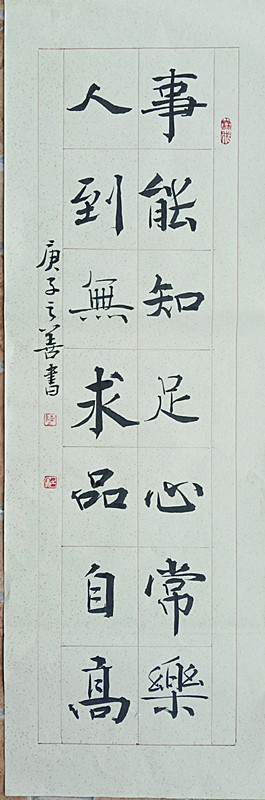 事能知足心常樂
人到無求品自高
庚子之善書